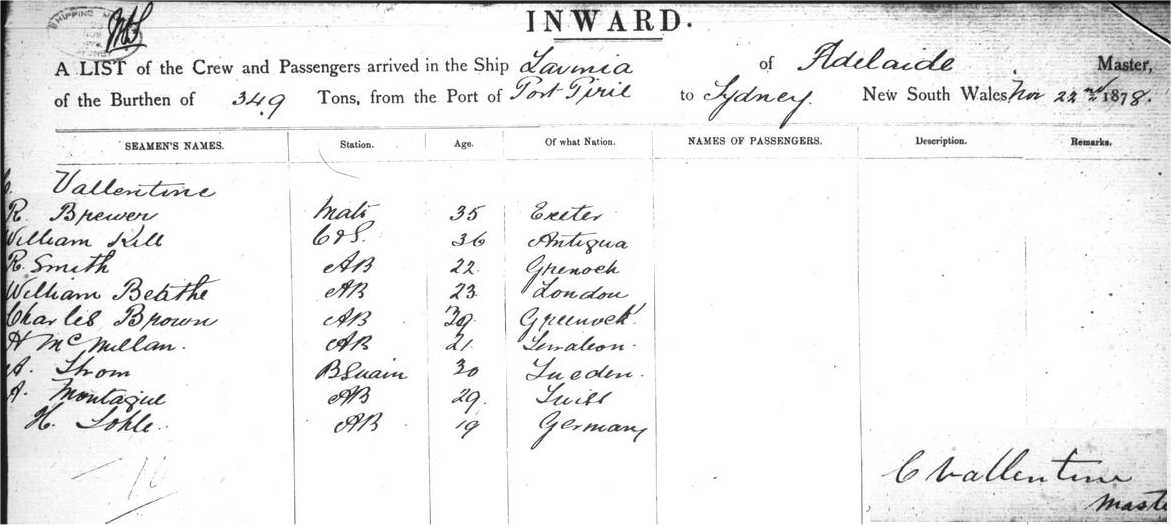 SHIPPING
INWARD.
A LIST of the Crew and Passengers arrived in the Ship Lavinia of Adelaide Master,
of the Burthen of 349 Tons, from the Port of Port Pirie to Sydney. New South Wales Nov 22nd 1878.
SEAMEN'S NAMES. Station. Age. Of what Nation. NAMES OF PASSENGERS. Description. Remarks.
C. Vallentine
R. Brewer Mate 35 Exeter
William Kill C&S. 36 Antigua
R. Smith AB 22 Grenock
William Beathe AB 23 London
Charles Brown AB 39 Greenock
H McMillan. AB 21
A. Strom BSuain 30 Sueden.
A. Montague AB 29. Swiss
H. Sohle. AB 19 Germany
10
C Vallentine
Maste